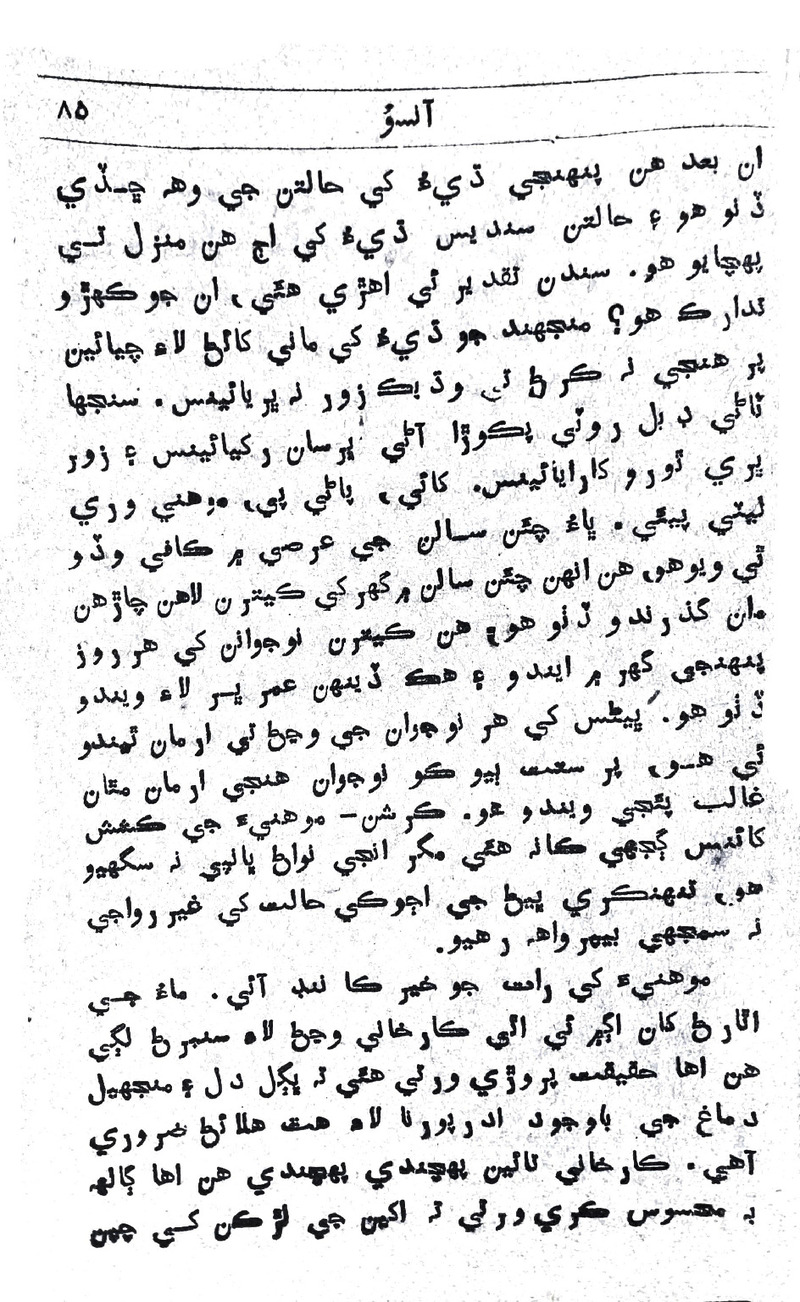 آلسوُ ٨٥
ان بعد هن پنهنجي ڌيءُ کي حالتن جي وهہ ڇـڏي
ڏنو هو ۽ حالتن سنديس ڌيءُ کي اڄ هن منزل تـي
پهچايو هو. سندن تقدير ئي اهڙي هئي، ان جو ڪهڙو
تدارڪ هو؟ منجهند جو ڌيءُ کي ماني کائڻ لاءِ چيائين
پر هنجي نہ ڪرڻ تي وڌيڪ زور نہ ڀريائينس. سنجها
ٽاڻي ڊبل روٽي پڪوڙا آڻي ڀرسان رکيائينس ۽ زور
ڀري ٿورو کارايائينس. کائي، پاڻي پي، موهني وري
ليٽي پيئي. ڀاءُ چئن سـالن جي عرصي ۾ ڪافي وڏو
ٿي ويوهو. هن انهن چئن سالن ۾ گهر کي ڪيترن لاهن چاڙهن
مان گذرندو ڏٺو هو. هن ڪيترن نوجوانن کي هر روز
پنهنجي گهر ۾ ايندو ۽ هڪ ڏينهن عمر ڀـر لاءِ ويندو
ڏٺو هو. ڀيڻس کي هر نوجوان جي وڃڻ تي ارمان ٿيندو
ئي هـو، پر سعت ٻيو ڪو نوجوان هنجي ارمان مٿان
غالب پئجي ويندو هو. ڪرشن– موهنيءَ جي ڪشش
کائنس ڳجهي ڪانہ هئي مگر انجي نواڻ ڀانپي نہ سگهيو
هو، تنهنڪري ڀيڻ جي اڄوڪي حالت کي غير رواجي
نہ سمجهي بيپرواهہ رهيو.
موهنيءَ کي رات جو خير ڪا ننڊ آئي. ماءُ جـي
اٿارڻ کان اڳڀر ئي اٿي ڪارخاني وڃڻ لاءِ سنبرڻ لڳي
هن اها حقيقت پروڙي ورتي هئي تہ ڀڳل دل ۽ منجهيل
دماغ جي باوجود ادرپورنا لاءِ هٿ هلائڻ ضروري
آهي. ڪارخاني تائين پهچندي پهچندي هن اها ڳالهہ
بہ محسوس ڪري ورتي تہ اکين جي لڙڪن کـي چمن